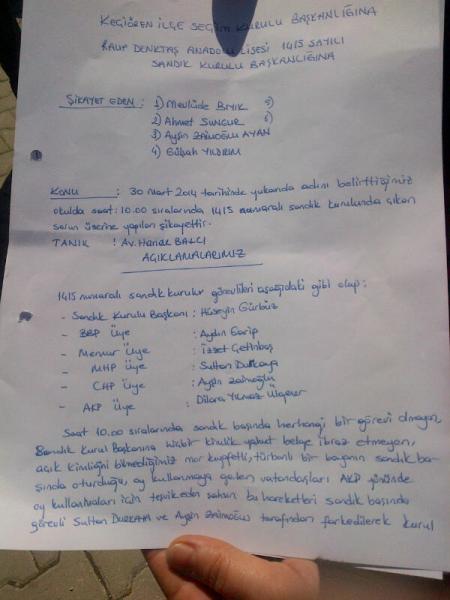 KEÇİÖREN İLÇE SEÇİM KURULU BAŞKANLIĞINA
RAUF DENKTAŞ ANADOLU LİSESİ 1415 SAYILI
SANDIK KURULU BAŞKANLIĞINA
ŞİKAYET EDEN : 1) Mevlüde BIYIK 5)
2) Ahmet SUNGUR 6)
3) Ayşin ZAİMOĞLU AYAN
4) Gülşah YILDIRIM
KONU : 30 Mart 2014 tarihinde yukarıda adını belirttiğimiz
okulda saat: 10.00 sıralarında 1415 numaralı sandık kurulunda çıkan
sorun üzerine yapılan şikayettir.
TANIK : Av. Hande BALCI
AÇIKLAMALARIMIZ
1415 numaralı sandık kurulu görevlileri aşağıdaki gibi olup:
- Sandık Kurulu Başkanı : Hüseyin Gürbüz
- BBP Üye : Aydın Garip
- Memur Üye : İzzet Çetinbaş
- MHP Üye : Sultan
- CHP Üye : Ayşin Zaimoğlu
- AKP Üye : Dilara Yılmaz
Saat 10.00 sıralarında sandık başında herhangi bir görevi olmayan,
Sandık Kurul Başkanına hiçbir kimlik yahut belge ibraz etmeyen,
açık kimliğini bilmediğimiz mor kıyafetli, türbanlı bir bayanın sandık ba-
şında oturduğu, oy kullanmaya gelen vatandaşları AKP yönünde
oy kullanmaları için teşvik eden şahsın bu hareketleri sandık başında
görevli Sultan ve Ayşin ZAİMOĞLU tarafından farkedilerek kurul